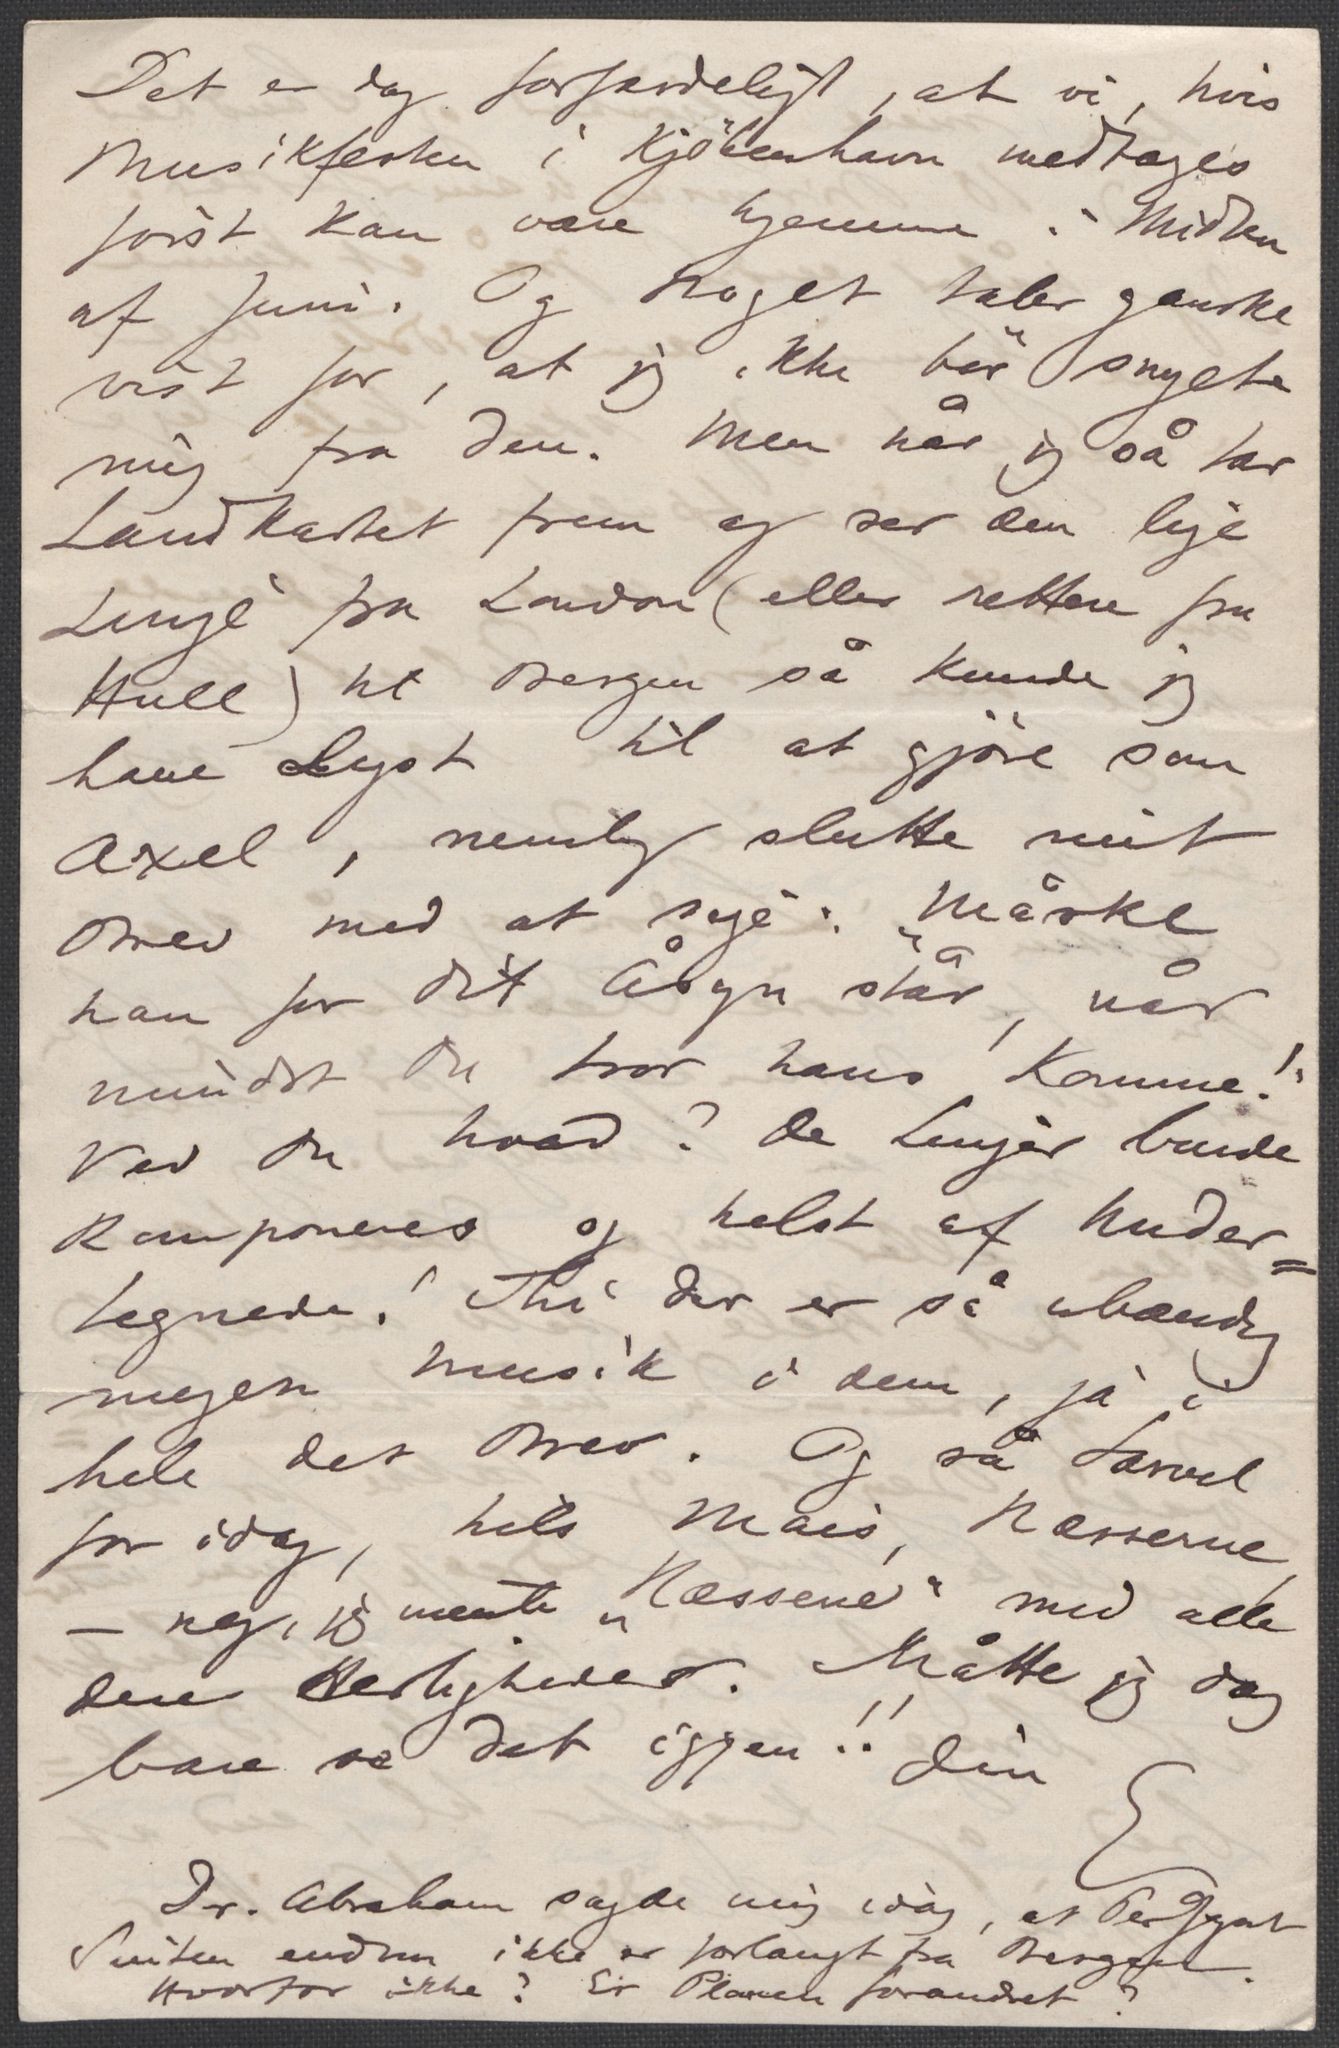 Det er dog forfærdeligt, at vi, hvis
Musikfesten i Kjöbenhavn medtages
först kan være hjemme i Midten
af Juni. Og Noget taler ganske
vist for, at jeg ikke bör snyete
mig fra den. Men når jeg så tar
Landkartet frem og ser den lige
Linje fra London (eller rettere fra
Hull) til Bergen så kunde jeg
have Lyst til at gjöre som
Axel, nemlig slutte mit
Brev med at sige: "Måske
han for dit Åsyn står, når
mindst du tror hans Komme!"
Ved du hvad? De Linjer burde
komponeres og helst af Under=
tegnede! Thi der er så ubændig
megen Musik i dem, ja i
hele det Brev. Og så Farvel
for idag, hils Mais, Næsserne,
— nej, jeg mente „Næssene" med alle
dere Herligheder. Måtte jeg dog
bare se det igjen!! Din
E
Dr. Abraham sagde mig idag, at Peer Gynt
Suiten endnu ikke er forlangt fra Bergen.
Hvorfor ikke? Er Planen forandret?